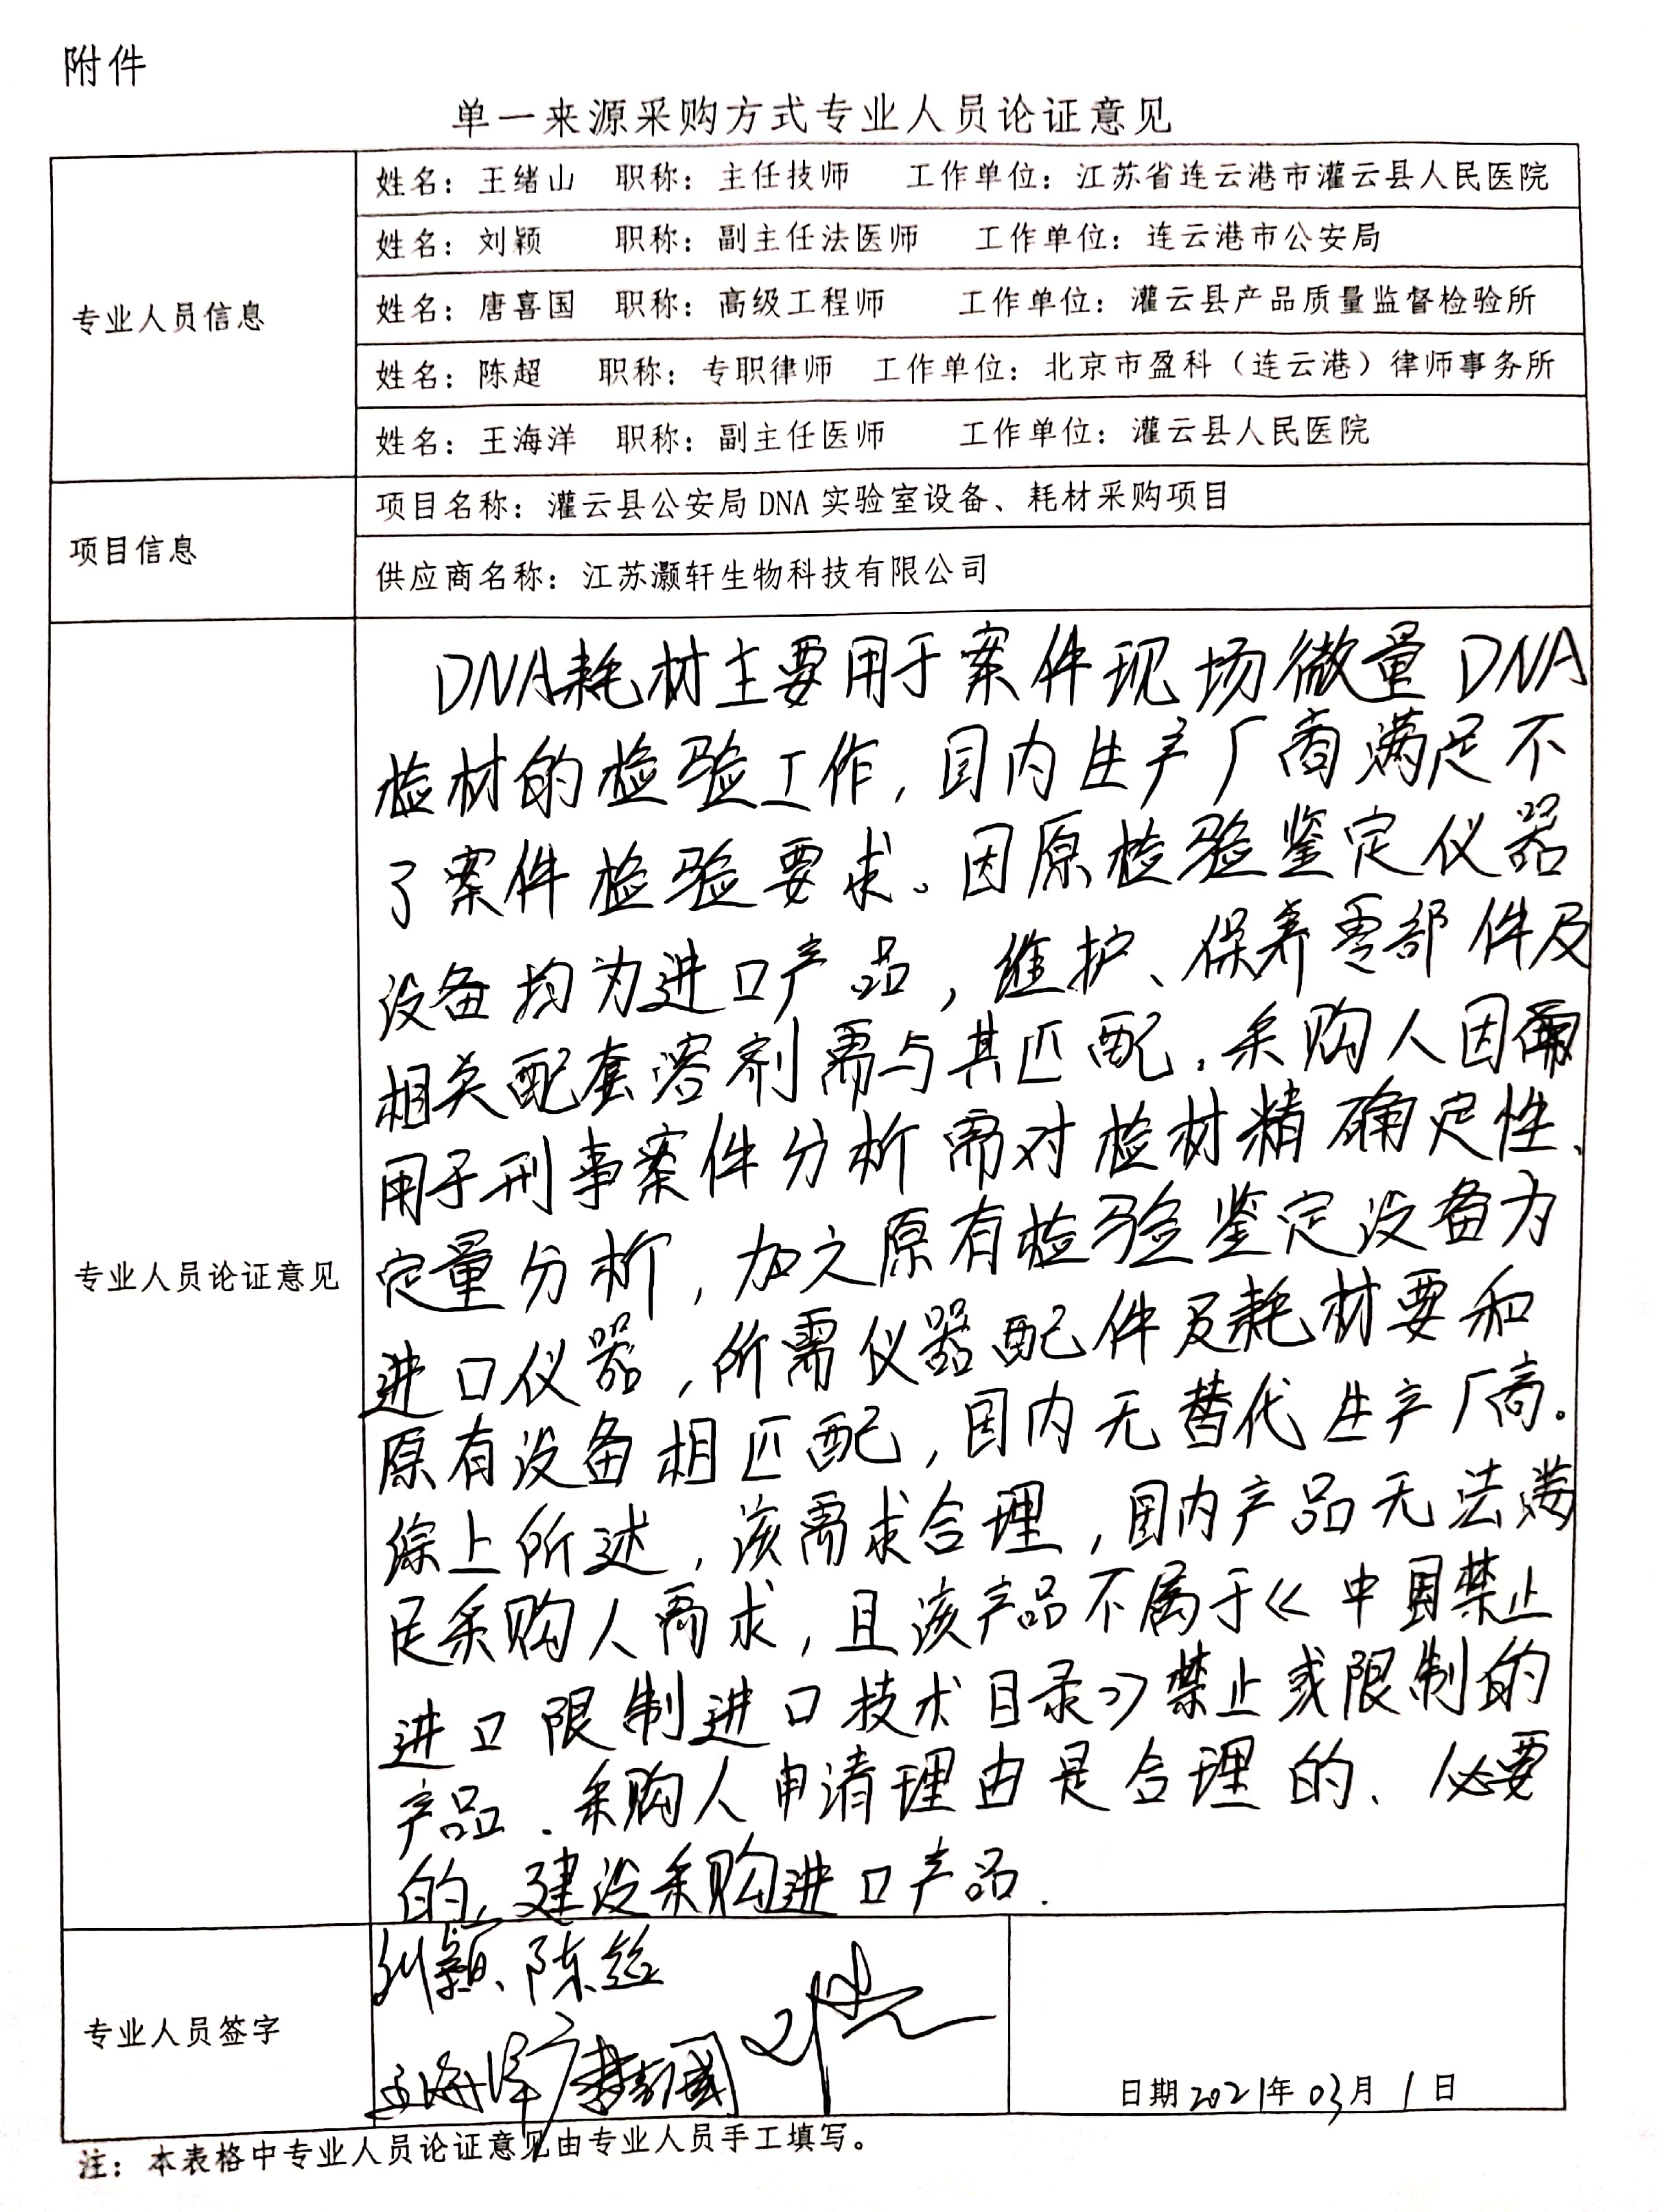 附件
单一来源采购方式专业人员论证意见
专业人员信息
姓名：王绪山 职称：主任技师 工作单位：江苏省连云港市灌云县人民医院
姓名：刘颖 职称：副主任法医师 工作单位：连云港市公安局
姓名：唐喜国 职称：高级工程师 工作单位：灌云县产品质量监督检验所
姓名：陈超 职称：专职律师 工作单位：北京市盈科（连云港）律师事务所
姓名：王海洋 职称：副主任医师 工作单位：灌云县人民医院
项目信息
项目名称：灌云县公安局DNA实验室设备、耗材采购项目
供应商名称：江苏灏轩生物科技有限公司
专业人员论证意见
DNA耗材主要用于案件现场微量DNA
检材的检验工作，国内生产厂商满足不
了案件检验要求。因原检验鉴定仪器
设备均为进口产品，维护、保养零部件及
相关配套溶剂需与其匹配，采购人因需
用于刑事案件分析需对检材精确定性、
定量分析，加之原有检验鉴定设备为
进口仪器，所需仪器配件及耗材要和
原有设备相匹配，国内无替代生产厂商。
综上所述，该需求合理，国内产品无法满
足采购人需求，且该产品不属于《中国禁止
进口限制进口技术目录》禁止或限制的
产品．采购人申请理由是合理的、必要
的，建设采购进口产品．
专业人员签字
刘颖、陈超
王海洋 唐喜國
日期2021年03月1日
注：本表格中专业人员论证意见由专业人员手工填写。